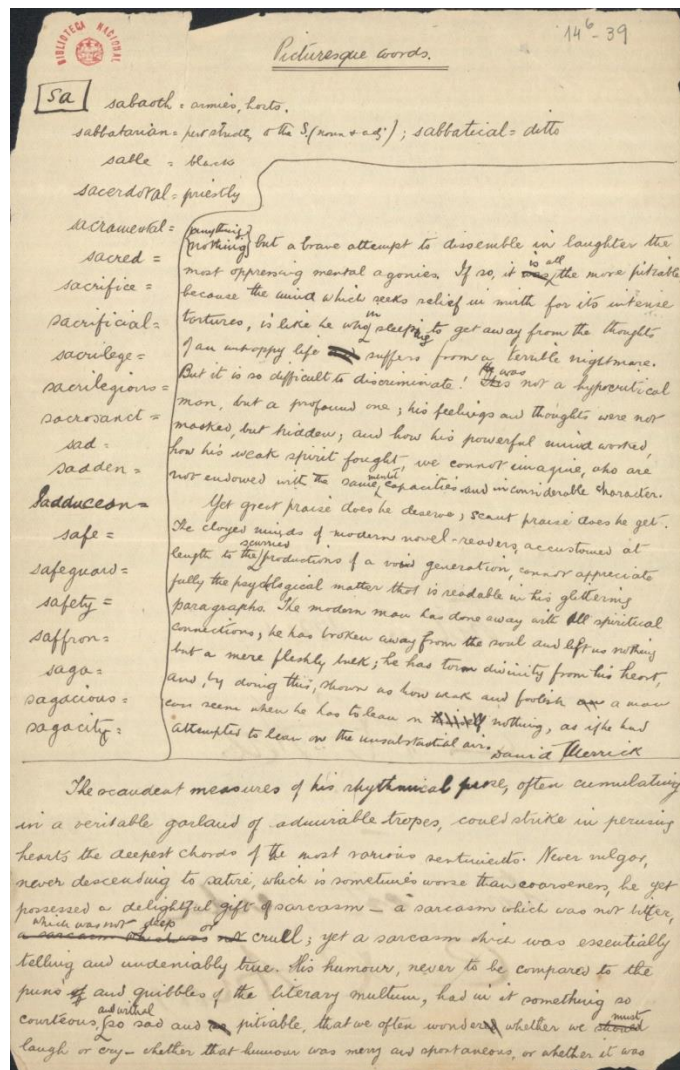 BIBLIOTECA NACIONAL
14⁶-39
Picturesque words.
Sa
sabaoth = armies, hosts.
sabbatarian = pert. strictly to the S. (noun & adj.); sabbatical = ditto
sable = black
sacerdotal = priestly
sacramental =
sacred =
sacrifice =
sacrificial =
sacrilege =
sacrilegious =
sacrosanct =
sad =
sadden =
Sadducean =
safe =
safeguard =
safety =
saffron =
saga =
sagacious =
sagacity =
{anything nothing} but a brave attempt to dissemble in laughter the
most oppressing mental agonies. If so, it was is all the more pitiable
because the mind which seeks relief in mirth for its intense
tortures, is like he who in sleeping to get away from the thoughts
of an unhappy life suffers from a terrible nightmare.
But it is so difficult to discriminate! He was not a hypocritical
man, but a profound one; his feelings and thoughts were not
masked, but hidden; and how his powerful mind worked,
how his weak spirit fought, we cannot imagine, who are
not endowed with the same mental capacities and inconsiderable character.
Yet great praise does he deserve; scant praise does he get.
The cloyed minds of modern novel-readers, accustomed at
length to the scurried productions of a void generation, cannot appreciate
fully the psycological matter that is readable in his glittering
paragraphs. The modern man has done away with all spiritual
connections; he has broken away from the soul and left us nothing
but a mere fleshly bulk; he has torn divinity from his heart,
and, by doing this, shown us how weak and foolish a man
can seem when he has to lean on nothing, as if he had
attempted to lean on the unsubstantial air.
David Merrick
The decadent measures of his rhythmical prose, often cumulating
in a veritable garland of admirable tropes, could strike in perusing
hearts the deepest chords of the most various sentiments. Never vulgar,
never descending to satire, which is sometimes worse than coarseness, he yet
possessed a delightful gift of sarcasm — a sarcasm which was not bitter,
a sarcasm which was not which was not deep or cruel; yet a sarcasm which was essentially
telling and undeniably true. His humour, never to be compared to the
puns of and quibbles of the literary multum, had in it something so
courteous, and withal so sad and so pitiable, that we often wondered whether we should must
laugh or cry — whether that humour was merry and spontaneous, or whether it was